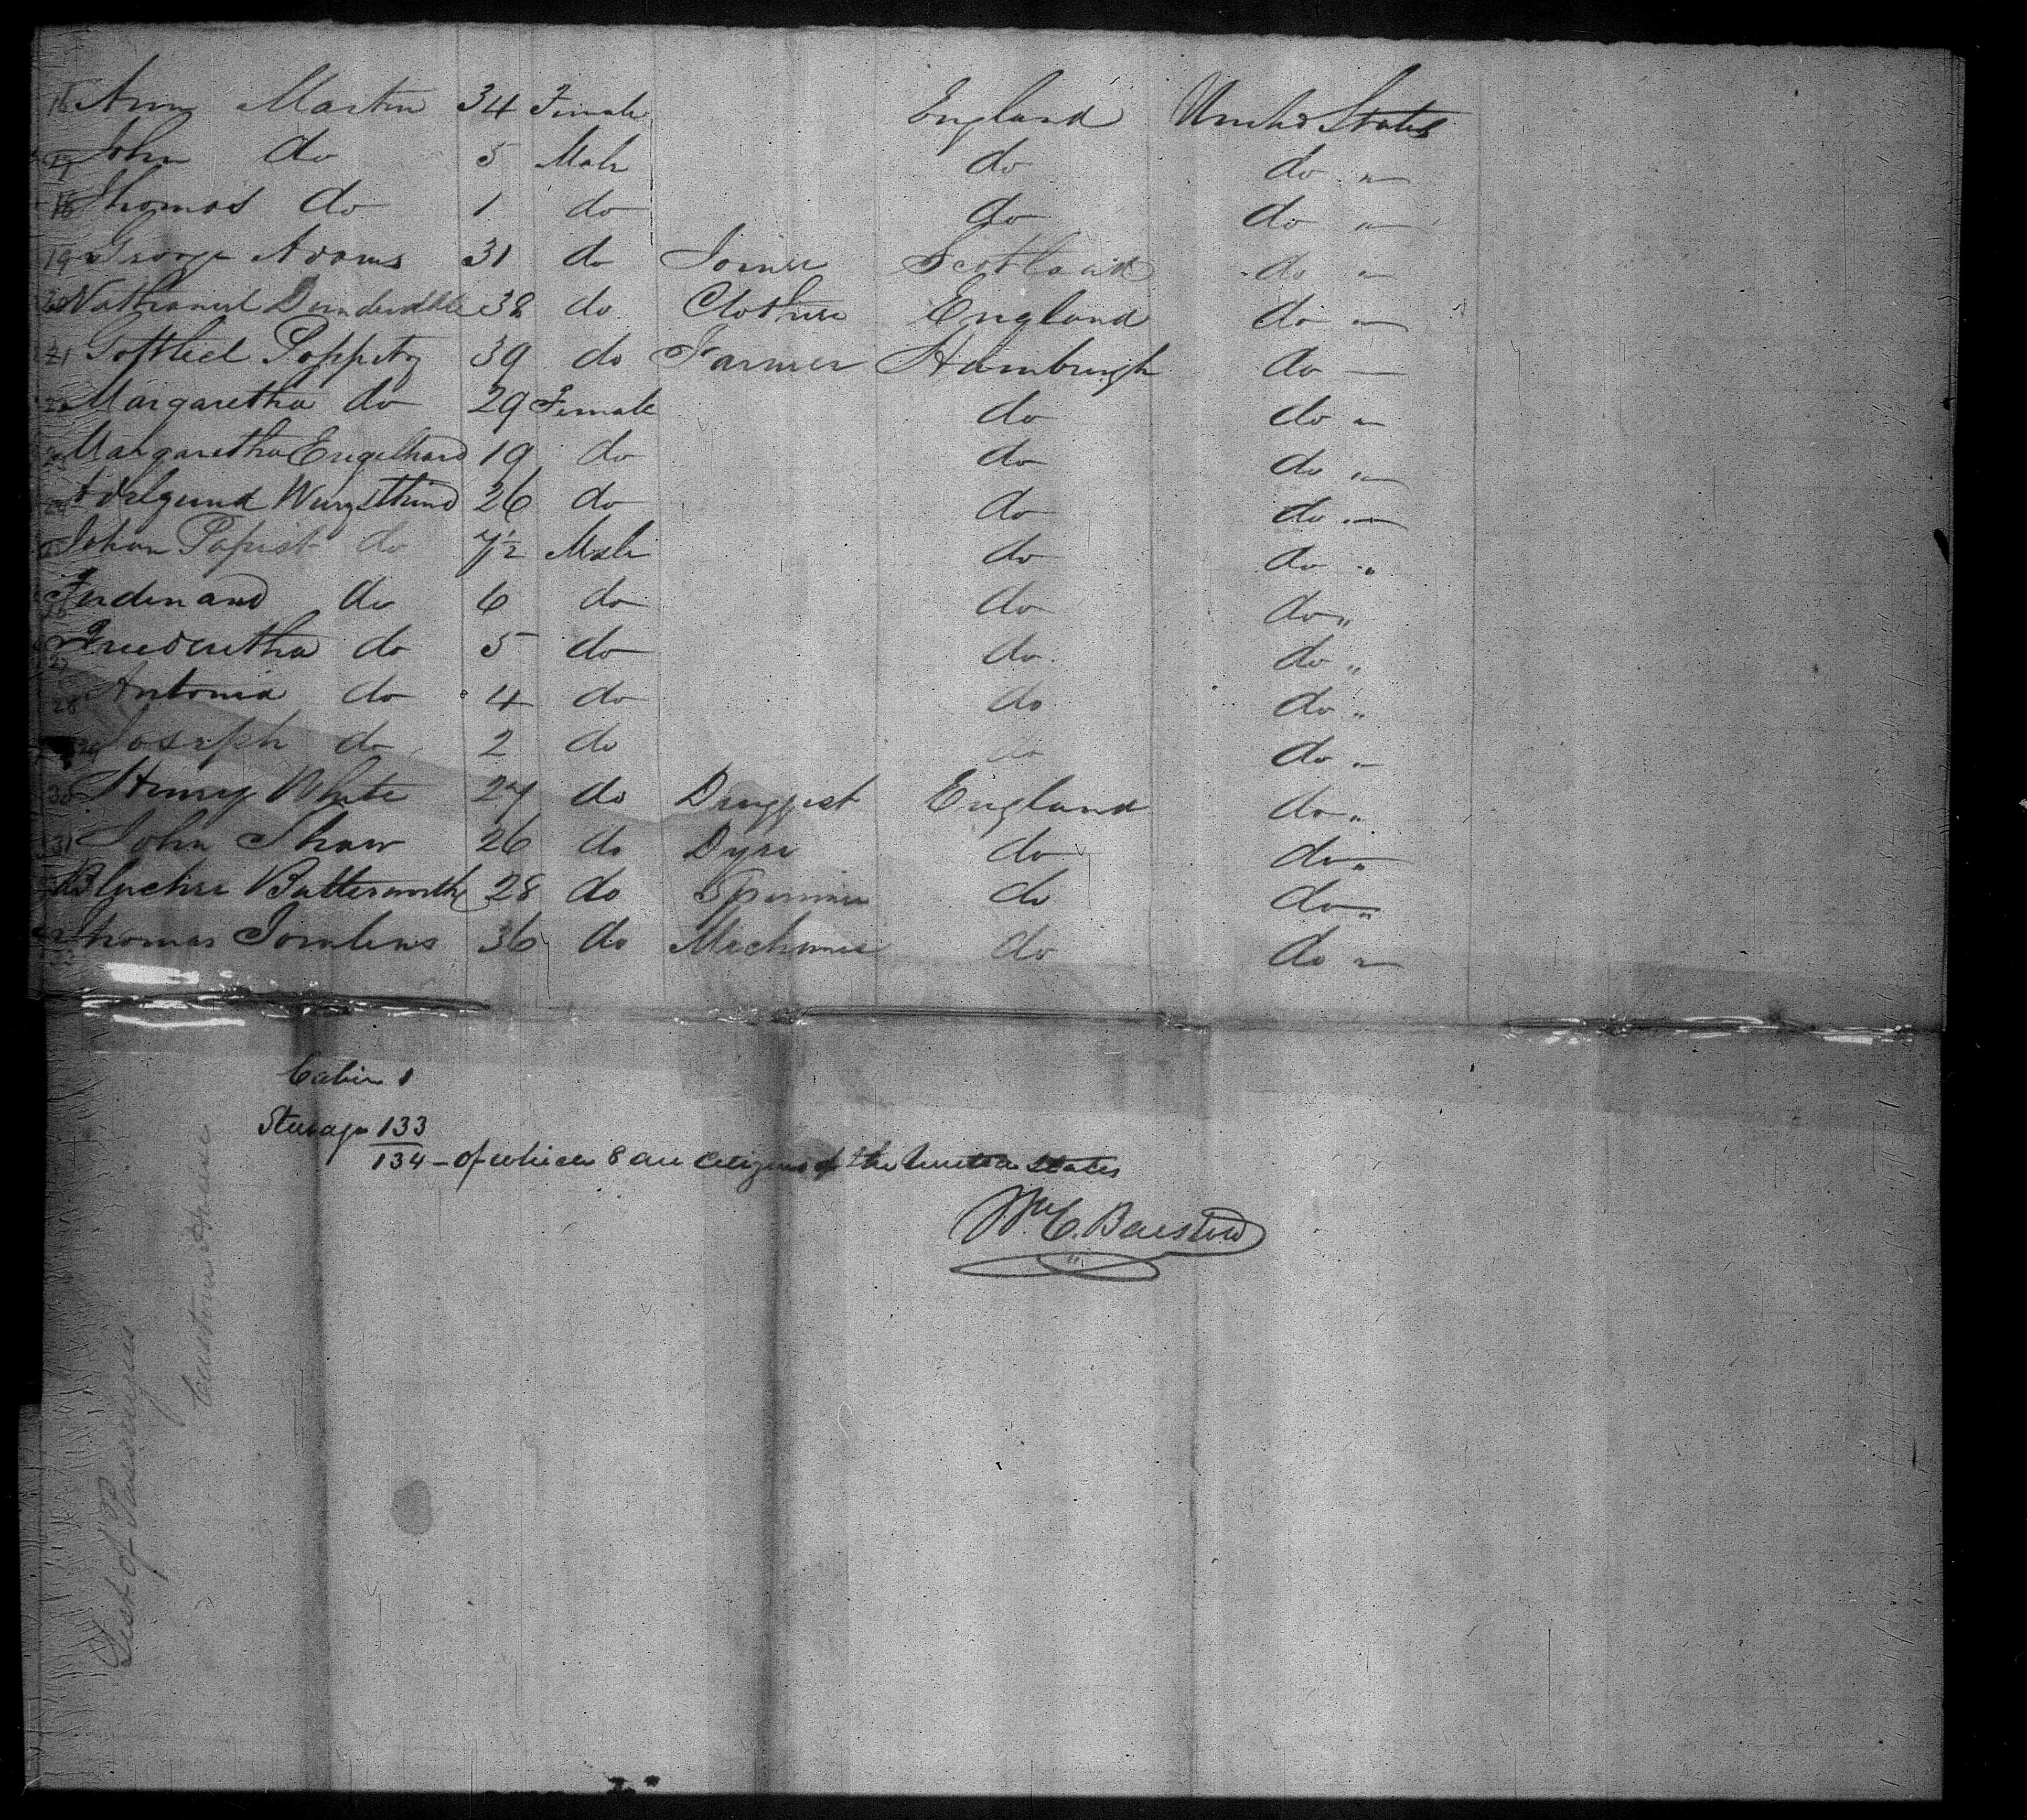 16 Ann Martin 34 Female England United States
17 John do 5 Male do do "
18 Thomas do 1 do do do "
19 George Adams 31 do Joiner Scotland do "
20 Nathaniel Dunderdale 38 do Clothier England do "
21 Gottlieb 39 do Farmer Hamburgh do
22 Margaretha do 29 Female do do "
23 Margaretha Engelhard 19 do do do "
24 Adelgund 26 do do do "
Johan do 7½ Male do do "
26 Ferdinand do 6 do do do "
27 do 5 do do do "
28 Antonia do 4 do do do "
29 Joseph do 2 do do do "
30 Henry White 27 do Druggist England do "
31 John Shaw 26 do Dyer do do "
Butterworth 28 do Spinner do do "
33 Thomas Tomlins 36 do do do "
Cabin 1
Steerage 133
134 - of which 8 are citizens of the United States
Wm C. Barstow
List of Passengers
Custom House